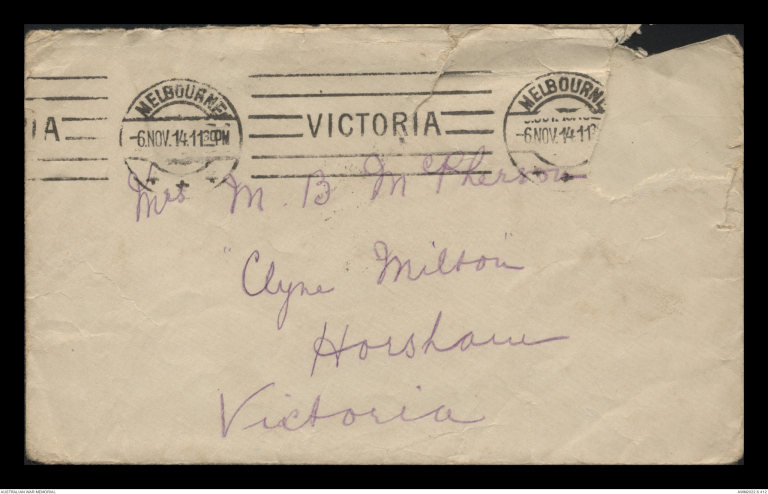 MELBOURNE
IA
-6.NOV.14.1130PM
VICTORIA
MELBOURNE
-6.NOV.14.11
Mrs M. B McPherson
"Clyne Milton"
Horsham
Victoria
AUSTRALIAN WAR MEMORIAL